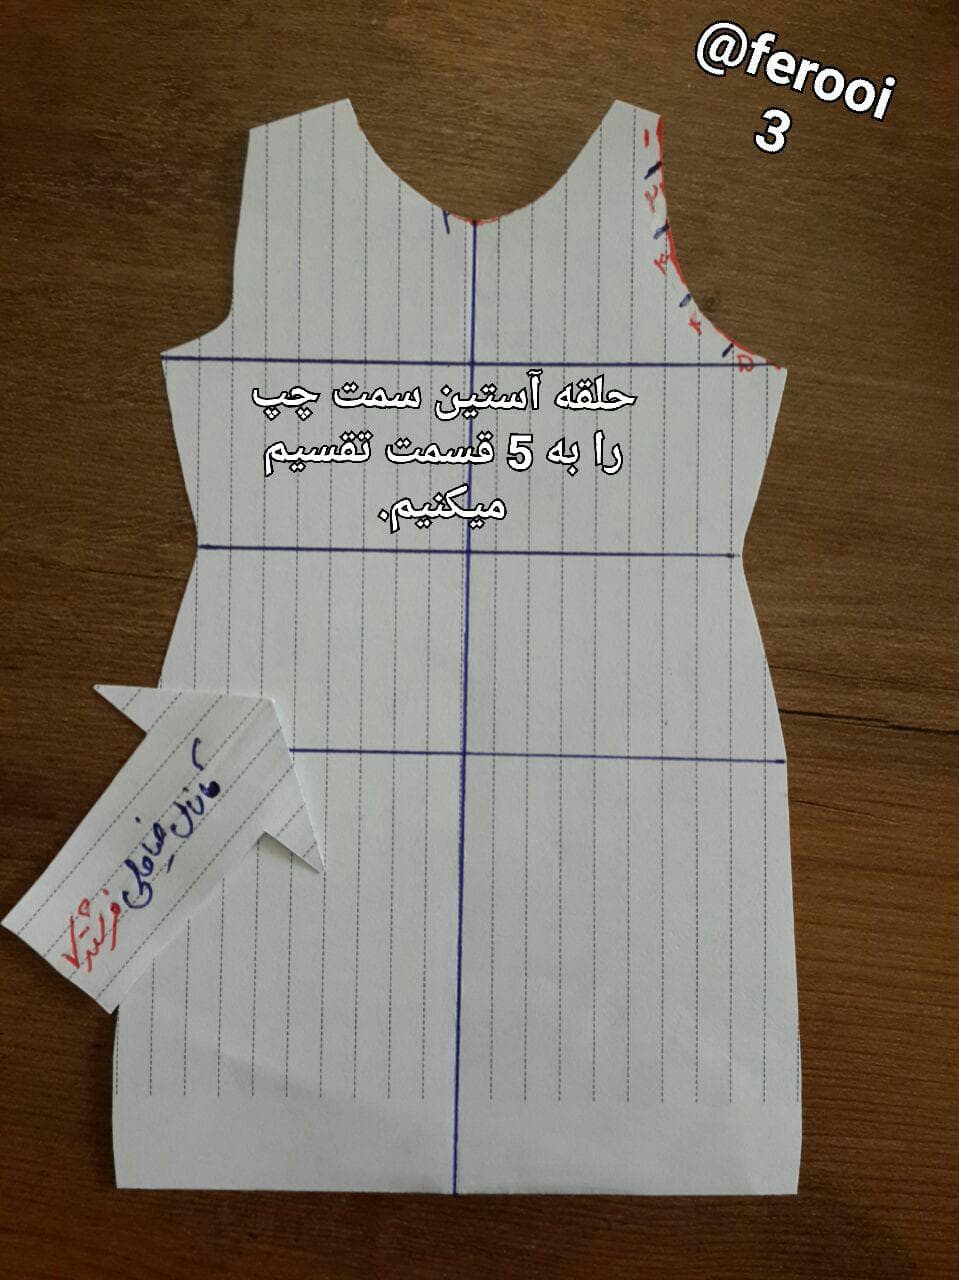 @ferooi
3
حلقه آستین سمت چپ
را به 5 قسمت تقسیم
میکنیم.
کانال خیاطی